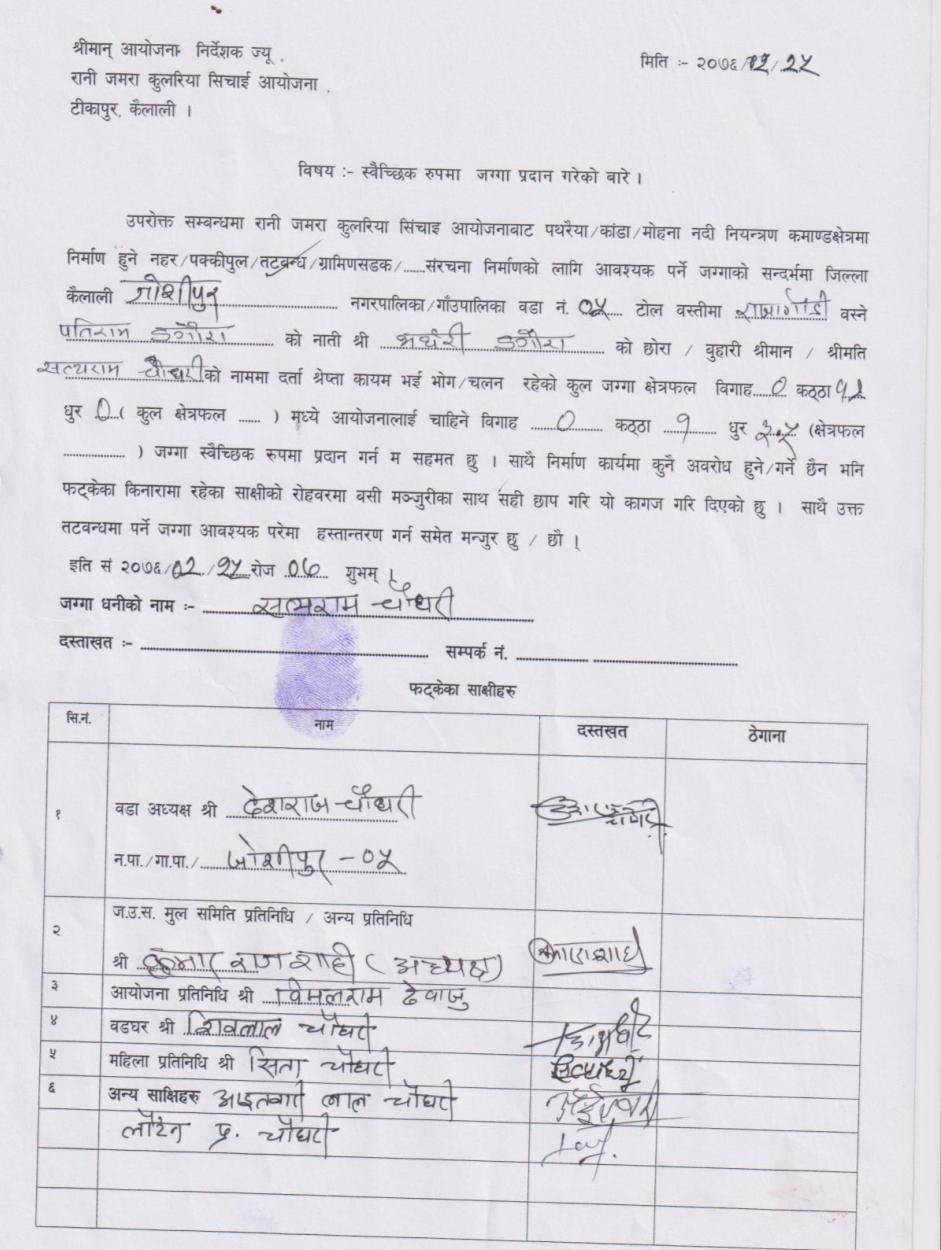 श्रीमान् आयोजना निर्देशक ज्यू ,
मिति :- २०७६/१२/२५
रानी जमरा कुलरिया सिचाई आयोजना ,
टीकापुर, कैलाली ।
विषय :- स्वैच्छिक रुपमा जग्गा प्रदान गरेको बारे ।
उपरोक्त सम्बन्धमा रानी जमरा कुलरिया सिंचाइ आयोजनाबाट पथरैया/कांडा/मोहना नदी नियन्त्रण कमाण्डक्षेत्रमा
निर्माण हुने नहर/पक्कीपुल/तटबन्ध/ग्रामिणसडक/......संरचना निर्माणको लागि आवश्यक पर्ने जग्गाको सन्दर्भमा जिल्ला
कैलाली जोशीपुर नगरपालिका/गाँउपालिका वडा नं. ०५ टोल वस्तीमा वस्ने
पतिराम डगौरा को नाती श्री डगौरा को छोरा / बुहारी श्रीमान / श्रीमति
सत्यराम चौधरी को नाममा दर्ता श्रेष्ता कायम भई भोग/चलन रहेको कुल जग्गा क्षेत्रफल विगाह ० कठ्ठा
धुर ० ( कुल क्षेत्रफल ...... ) मध्ये आयोजनालाई चाहिने विगाह ० कठ्ठा १ धुर ३.५ (क्षेत्रफल
.................. ) जग्गा स्वैच्छिक रुपमा प्रदान गर्न म सहमत छु । साथै निर्माण कार्यमा कुनै अवरोध हुने/गर्ने छैन भनि
फट्केका किनारामा रहेका साक्षीको रोहवरमा वसी मञ्जुरीका साथ सही छाप गरि यो कागज गरि दिएको छु । साथै उक्त
तटवन्धमा पर्ने जग्गा आवश्यक परेमा हस्तान्तरण गर्न समेत मन्जुर छु / छौ ।
इति सं २०७६/०२/२५ रोज ०७ शुभम्
जग्गा धनीको नाम :- सत्यराम चौधरी
दस्ताखत :- सम्पर्क नं.
फट्केका साक्षीहरु
सि.नं. नाम दस्तखत ठेगाना
१ वडा अध्यक्ष श्री देशराज चौधरी
न.पा./गा.पा./ जोशीपुर - ०५
२ ज.उ.स. मुल समिति प्रतिनिधि / अन्य प्रतिनिधि
श्री कुमार राज शाही (अध्यक्ष)
३ आयोजना प्रतिनिधि श्री विमलराम देवाजु
४ वडघर श्री शिवलाल चौधरी
५ महिला प्रतिनिधि श्री सिता चौधरी
६ अन्य साक्षिहरु लाल चौधरी
लौटन प्र. चौधरी